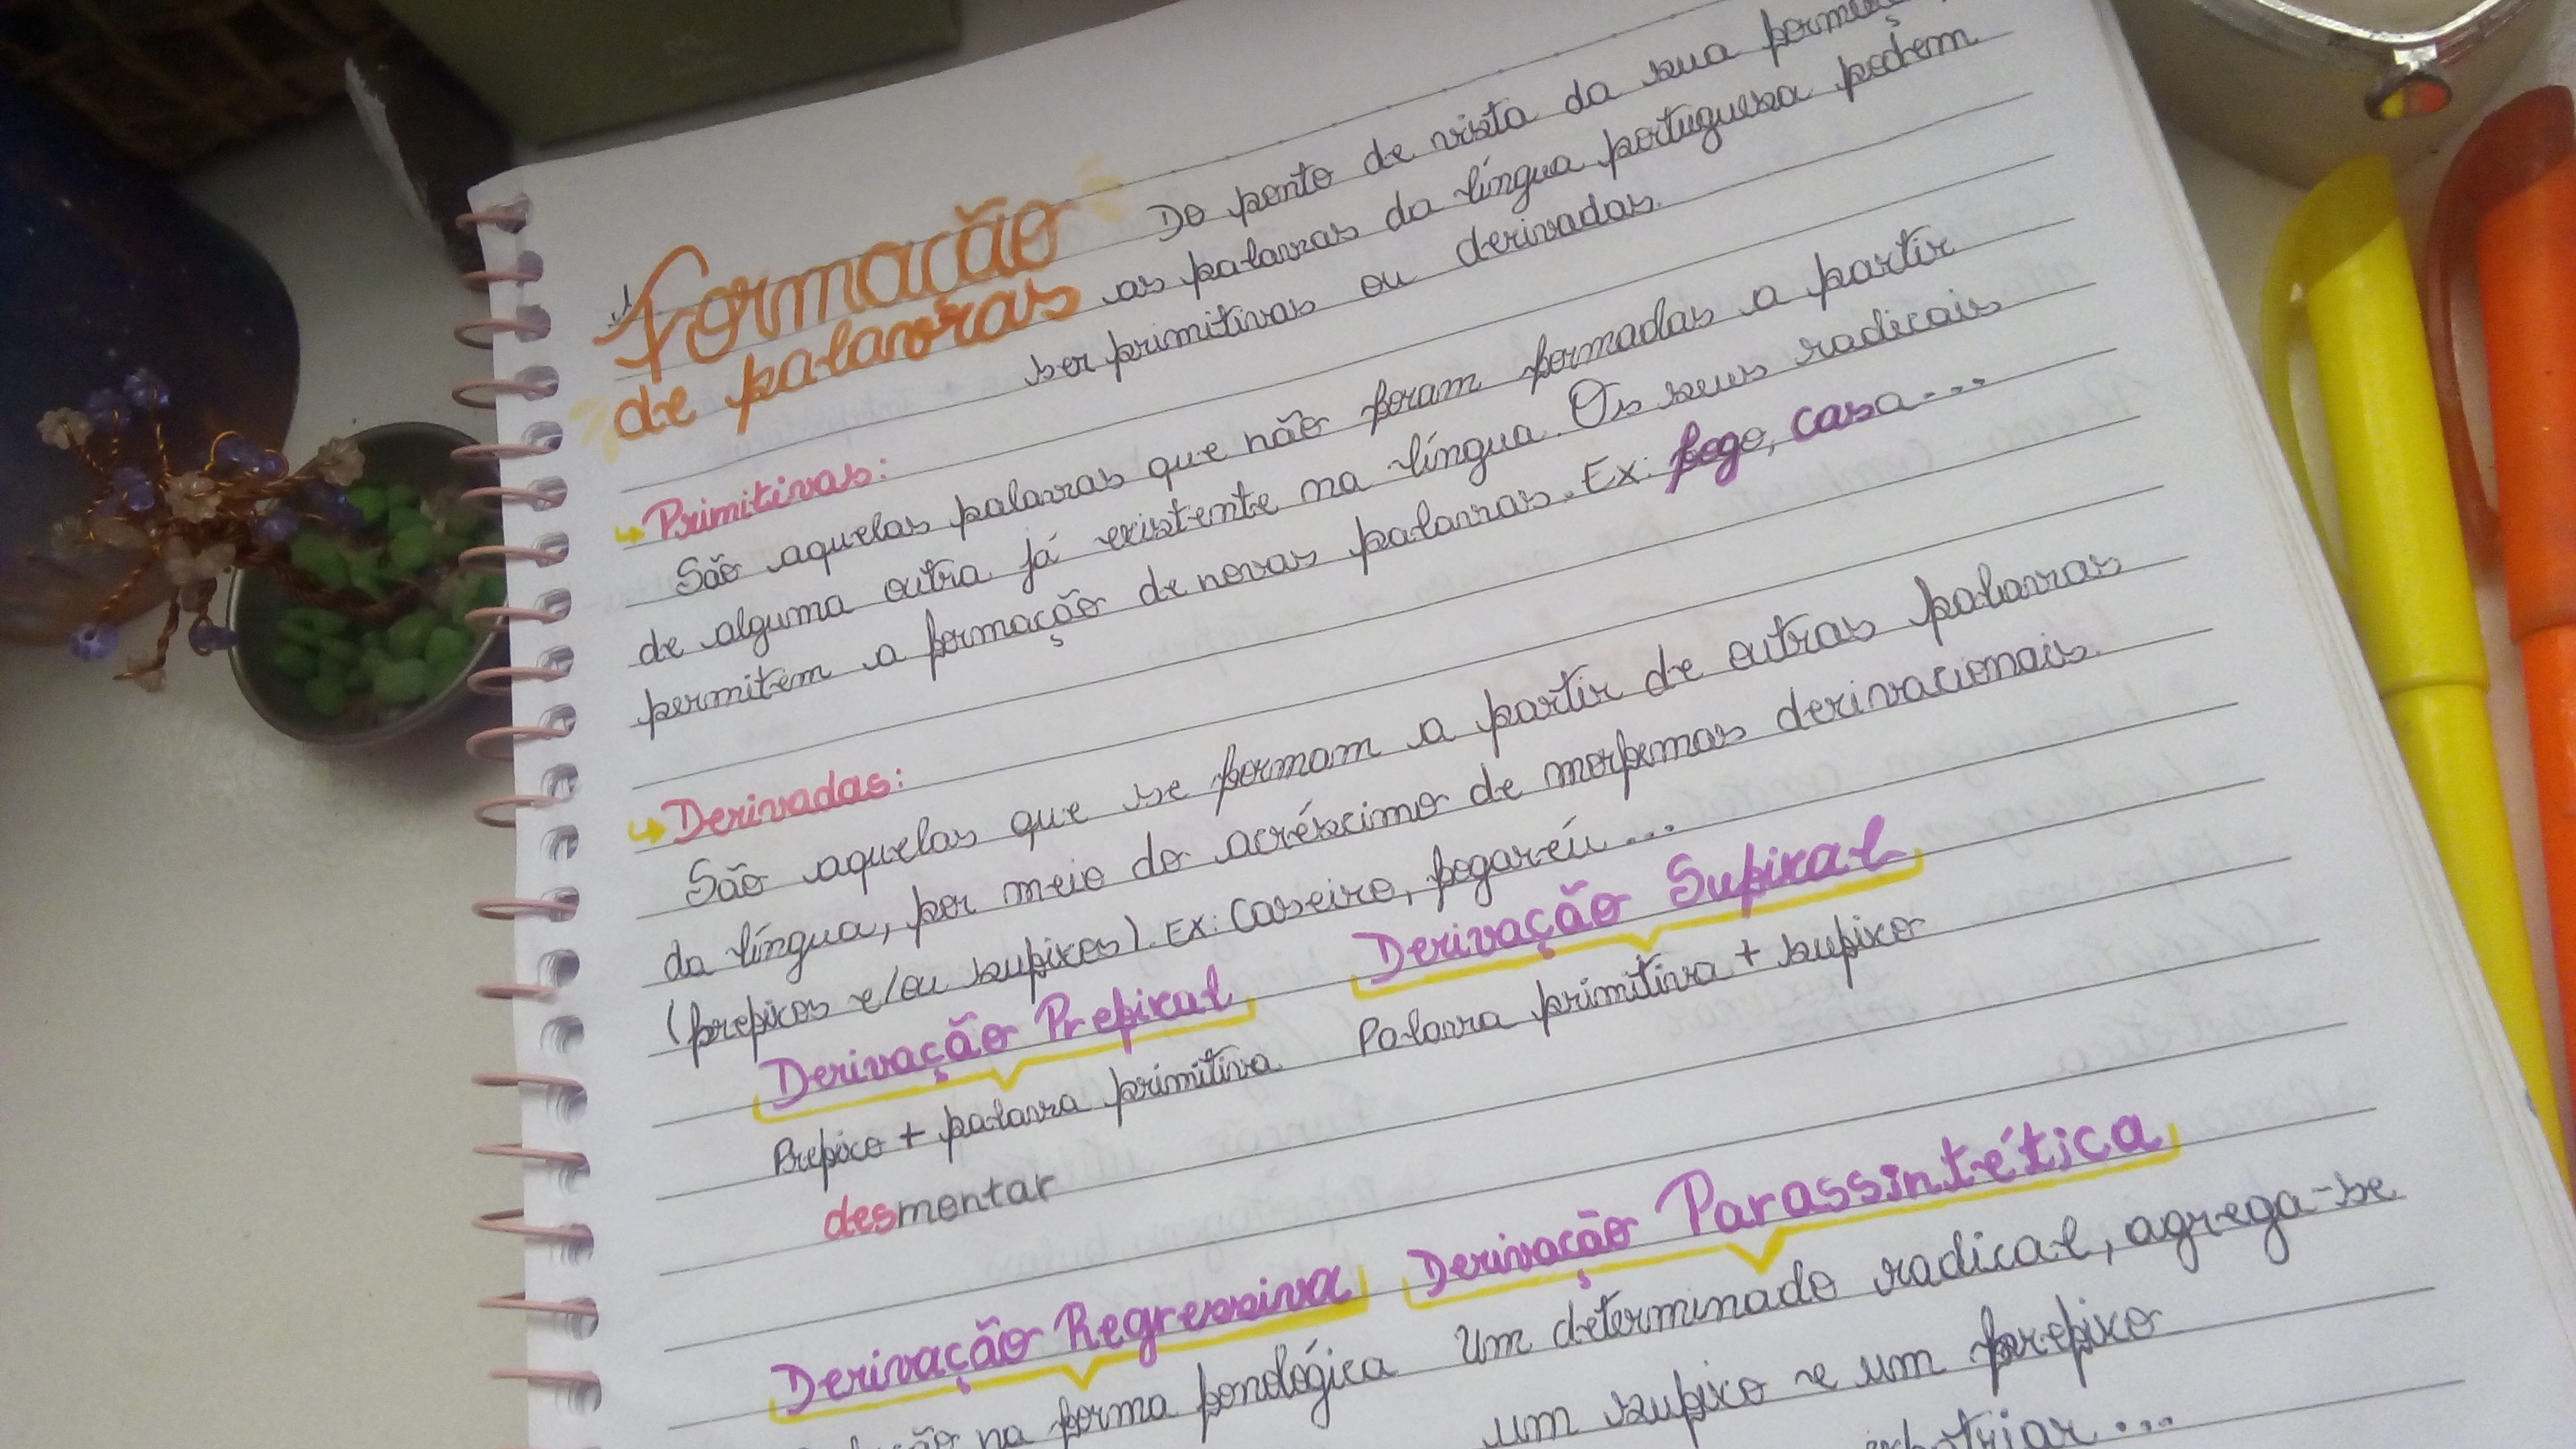 Formação de palavras
Do ponto de vista da sua
as palavras da língua portuguesa podem
ser primitivas ou derivadas.
↳ Primitivas:
São aquelas palavras que não foram formadas a partir
de alguma outra já existente na língua. Os seus radicais
permitem a formação de novas palavras. Ex: fogo, casa...
↳ Derivadas:
São aquelas que se formam a partir de outras palavras
da língua, por meio do acréscimo de morfemas derivacionais.
(prefixos e/ou sufixos). Ex: Caseiro, fogaréu...
Derivação Prefixal
Prefixo + palavra primitiva
desmontar
Derivação Sufixal
Palavra primitiva + sufixo
Derivação Regressiva
na forma fonológica
Derivação Parassintética
Um determinado radical, agrega-se
um sufixo e um prefixo